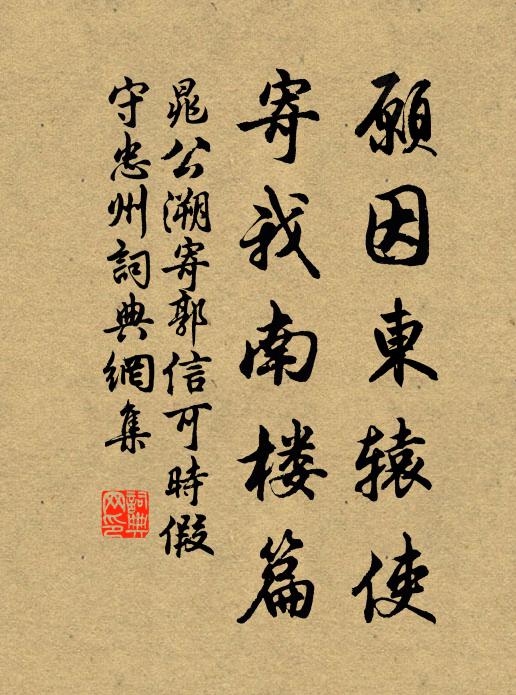 願因東辕使
寄我南楼篇
晁公溯寄郭信可時假
守忠州詞典網集
詞典
网印